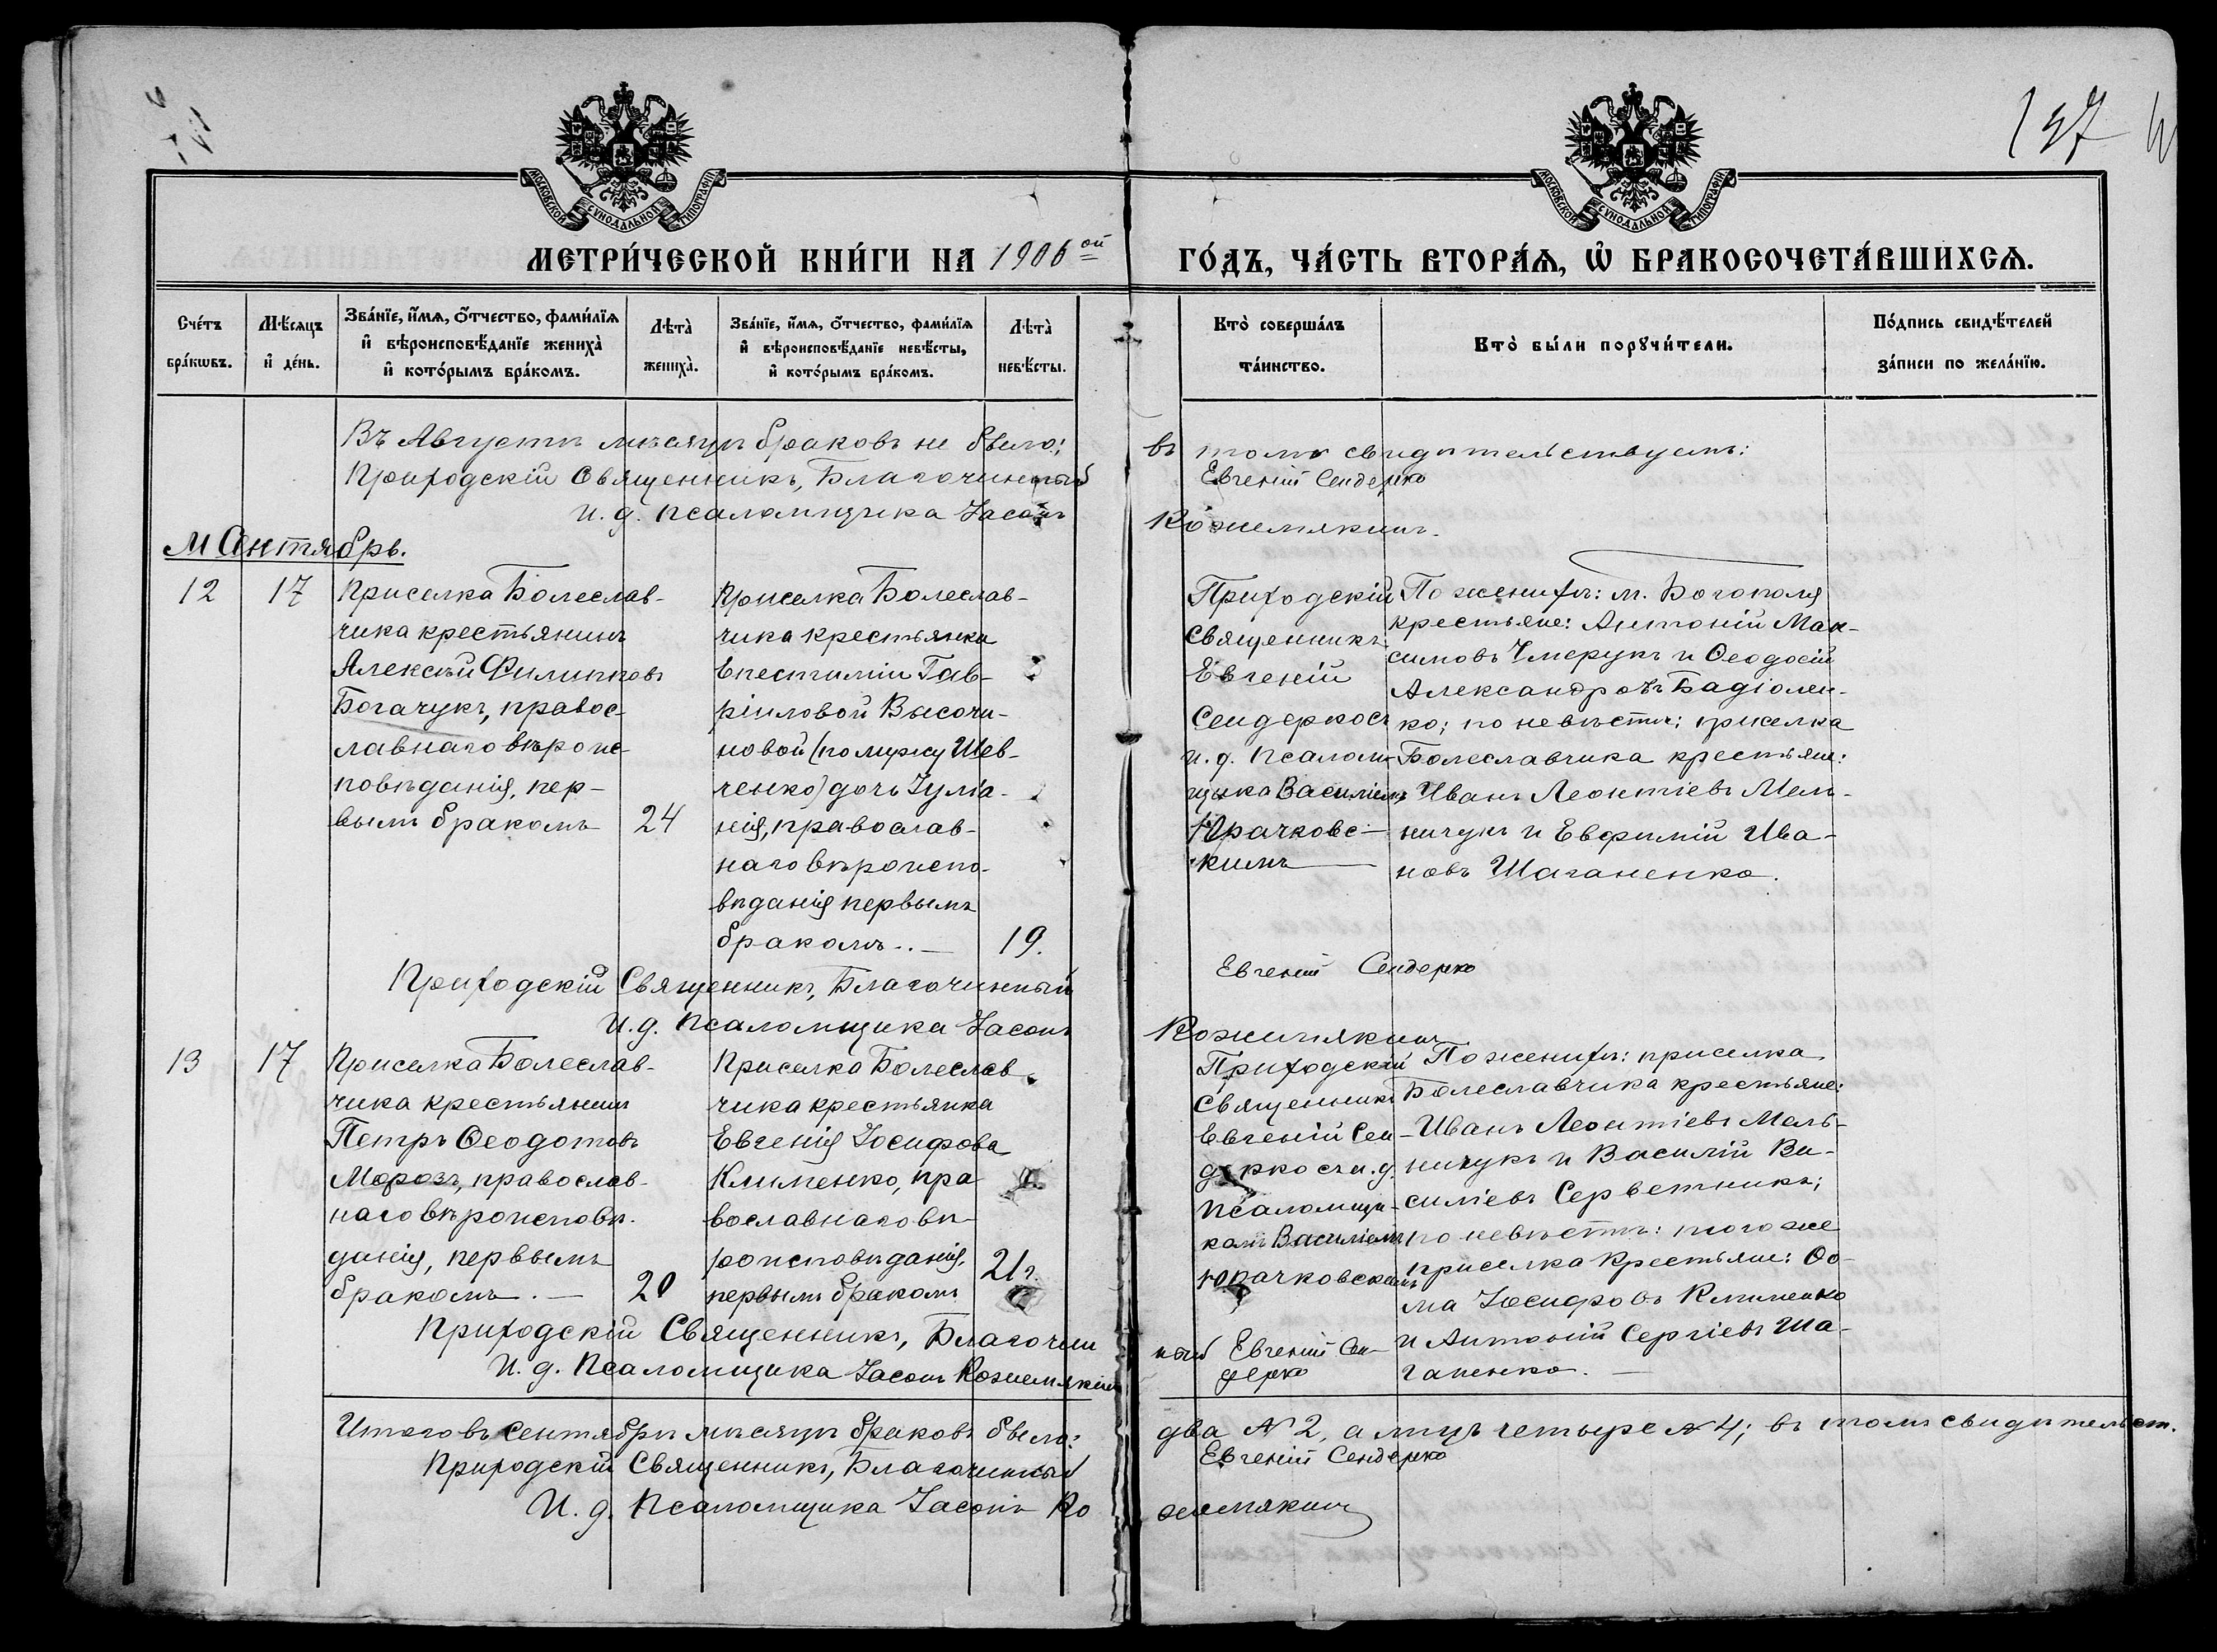 МОСКОВСКОЙ СѴНОДАЛЬНОЙ ТИПОГРАФІИ
МОСКОВСКОЙ СѴНОДАЛЬНОЙ ТИПОГРАФІИ
МЕТРИ́ЧЕСКОЙ КНИ́ГИ НА 1906 ой
ГО́ДЪ, ЧА́СТЬ ВТОРА́Ѧ, Ѡ҆ БРАКОСОЧЕТА́ВШИХСѦ.
Сче́тъ бра́кѡвъ.
Мѣ́сяцъ и҆ де́нь.
Зва́нїе, и҆́мѧ, ѻ҆́тчество, фами́лїѧ
и҆ вѣроисповѣ́данїе жениха̀
и҆ кото́рымъ бра́комъ.
Лѣта̀ жениха̀.
Зва́нїе, и҆́мѧ, ѻ҆́тчество, фами́лїѧ
и҆ вѣроисповѣ́данїе невѣ́сты,
и҆ кото́рымъ бра́комъ.
Лѣта̀ невѣ́сты.
Кто̀ соверша́лъ
та́инство.
Кто̀ бы́ли порꙋчи́тели.
По́дпись свидѣ́телей
за́писи по жела́нїю.
Въ Августѣ мѣсяцѣ браковъ не было; въ томъ свидѣтельствуемъ:
Приходскій Священникъ, Благочинный Евгеній Сендерко
И. д. псаломщика Іасонъ Кожемякинъ.
М Сентябрь.
12
17
Приселка Болеслав-
чика крестьянинъ
Алексѣй Филипповъ
Богачукъ, правос-
лавнаго вѣроис-
повѣданія, пер-
вымъ бракомъ
24
Приселка Болеслав-
чика крестьянки
Епестиміи Гав-
ріиловой Высочи-
новой (по мужу Шев-
ченко) дочь Іуліа-
нія, православ-
наго вѣроиспо-
вѣданія первымъ
бракомъ. —
19.
Приходскій
Священникъ
Евгеній
Сендерко съ
и. д. псалом-
щика Василіемъ
Крачковс-
кимъ
По женихѣ: м. Богополя
крестьяне: Антоній Мак-
симовъ Чмерукъ и Ѳеодосій
Александровъ Бадіолен-
ко; по невѣстѣ: приселка
Болеславчика крестьяне:
Иванъ Леонтіевъ Мель-
ничукъ и Евфимій Ива-
новъ Шаганенко.
Приходскій Священникъ, Благочинный Евгеній Сендерко
И. д. Псаломщика Іасонъ Кожемякинъ
13
17
Приселка Болеслав-
чика крестьянинъ
Петръ Ѳеодотовъ
Морозъ, православ-
наго вѣроисповѣ-
данія, первымъ
бракомъ. —
20
Приселка Болеслав
чика крестьянка
Евгенія Іосифова
Клименко, пра
вославнаго вѣ-
роисповѣданія,
первымъ бракомъ
21 г.
Приходскій
Священникъ
Евгеній Сен-
дерко съ и. д.
псаломщи-
комъ Василіемъ
Крачковскимъ
По женихѣ: приселка
Болеславчика крестьяне:
Иванъ Леонтіевъ Мель-
ничукъ и Василій Ва-
силіевъ Серветникъ;
по невѣстѣ: того же
приселка крестьяне: Ѳо-
ма Іосифовъ Клименко
и Антоній Сергіевъ Ша-
ганенко. —
Приходскій Священникъ, Благочинный Евгеній Сен-
дерко
И. д. Псаломщика Іасонъ Кожемякинъ
Итого въ сентябрѣ мѣсяцѣ браковъ было: два № 2, а лицъ четыре № 4; въ томъ свидѣтельст.
Приходскій Священникъ, Благочинный Евгеній Сендерко
И. д. Псаломщика Іасонъ Кожемякинъ